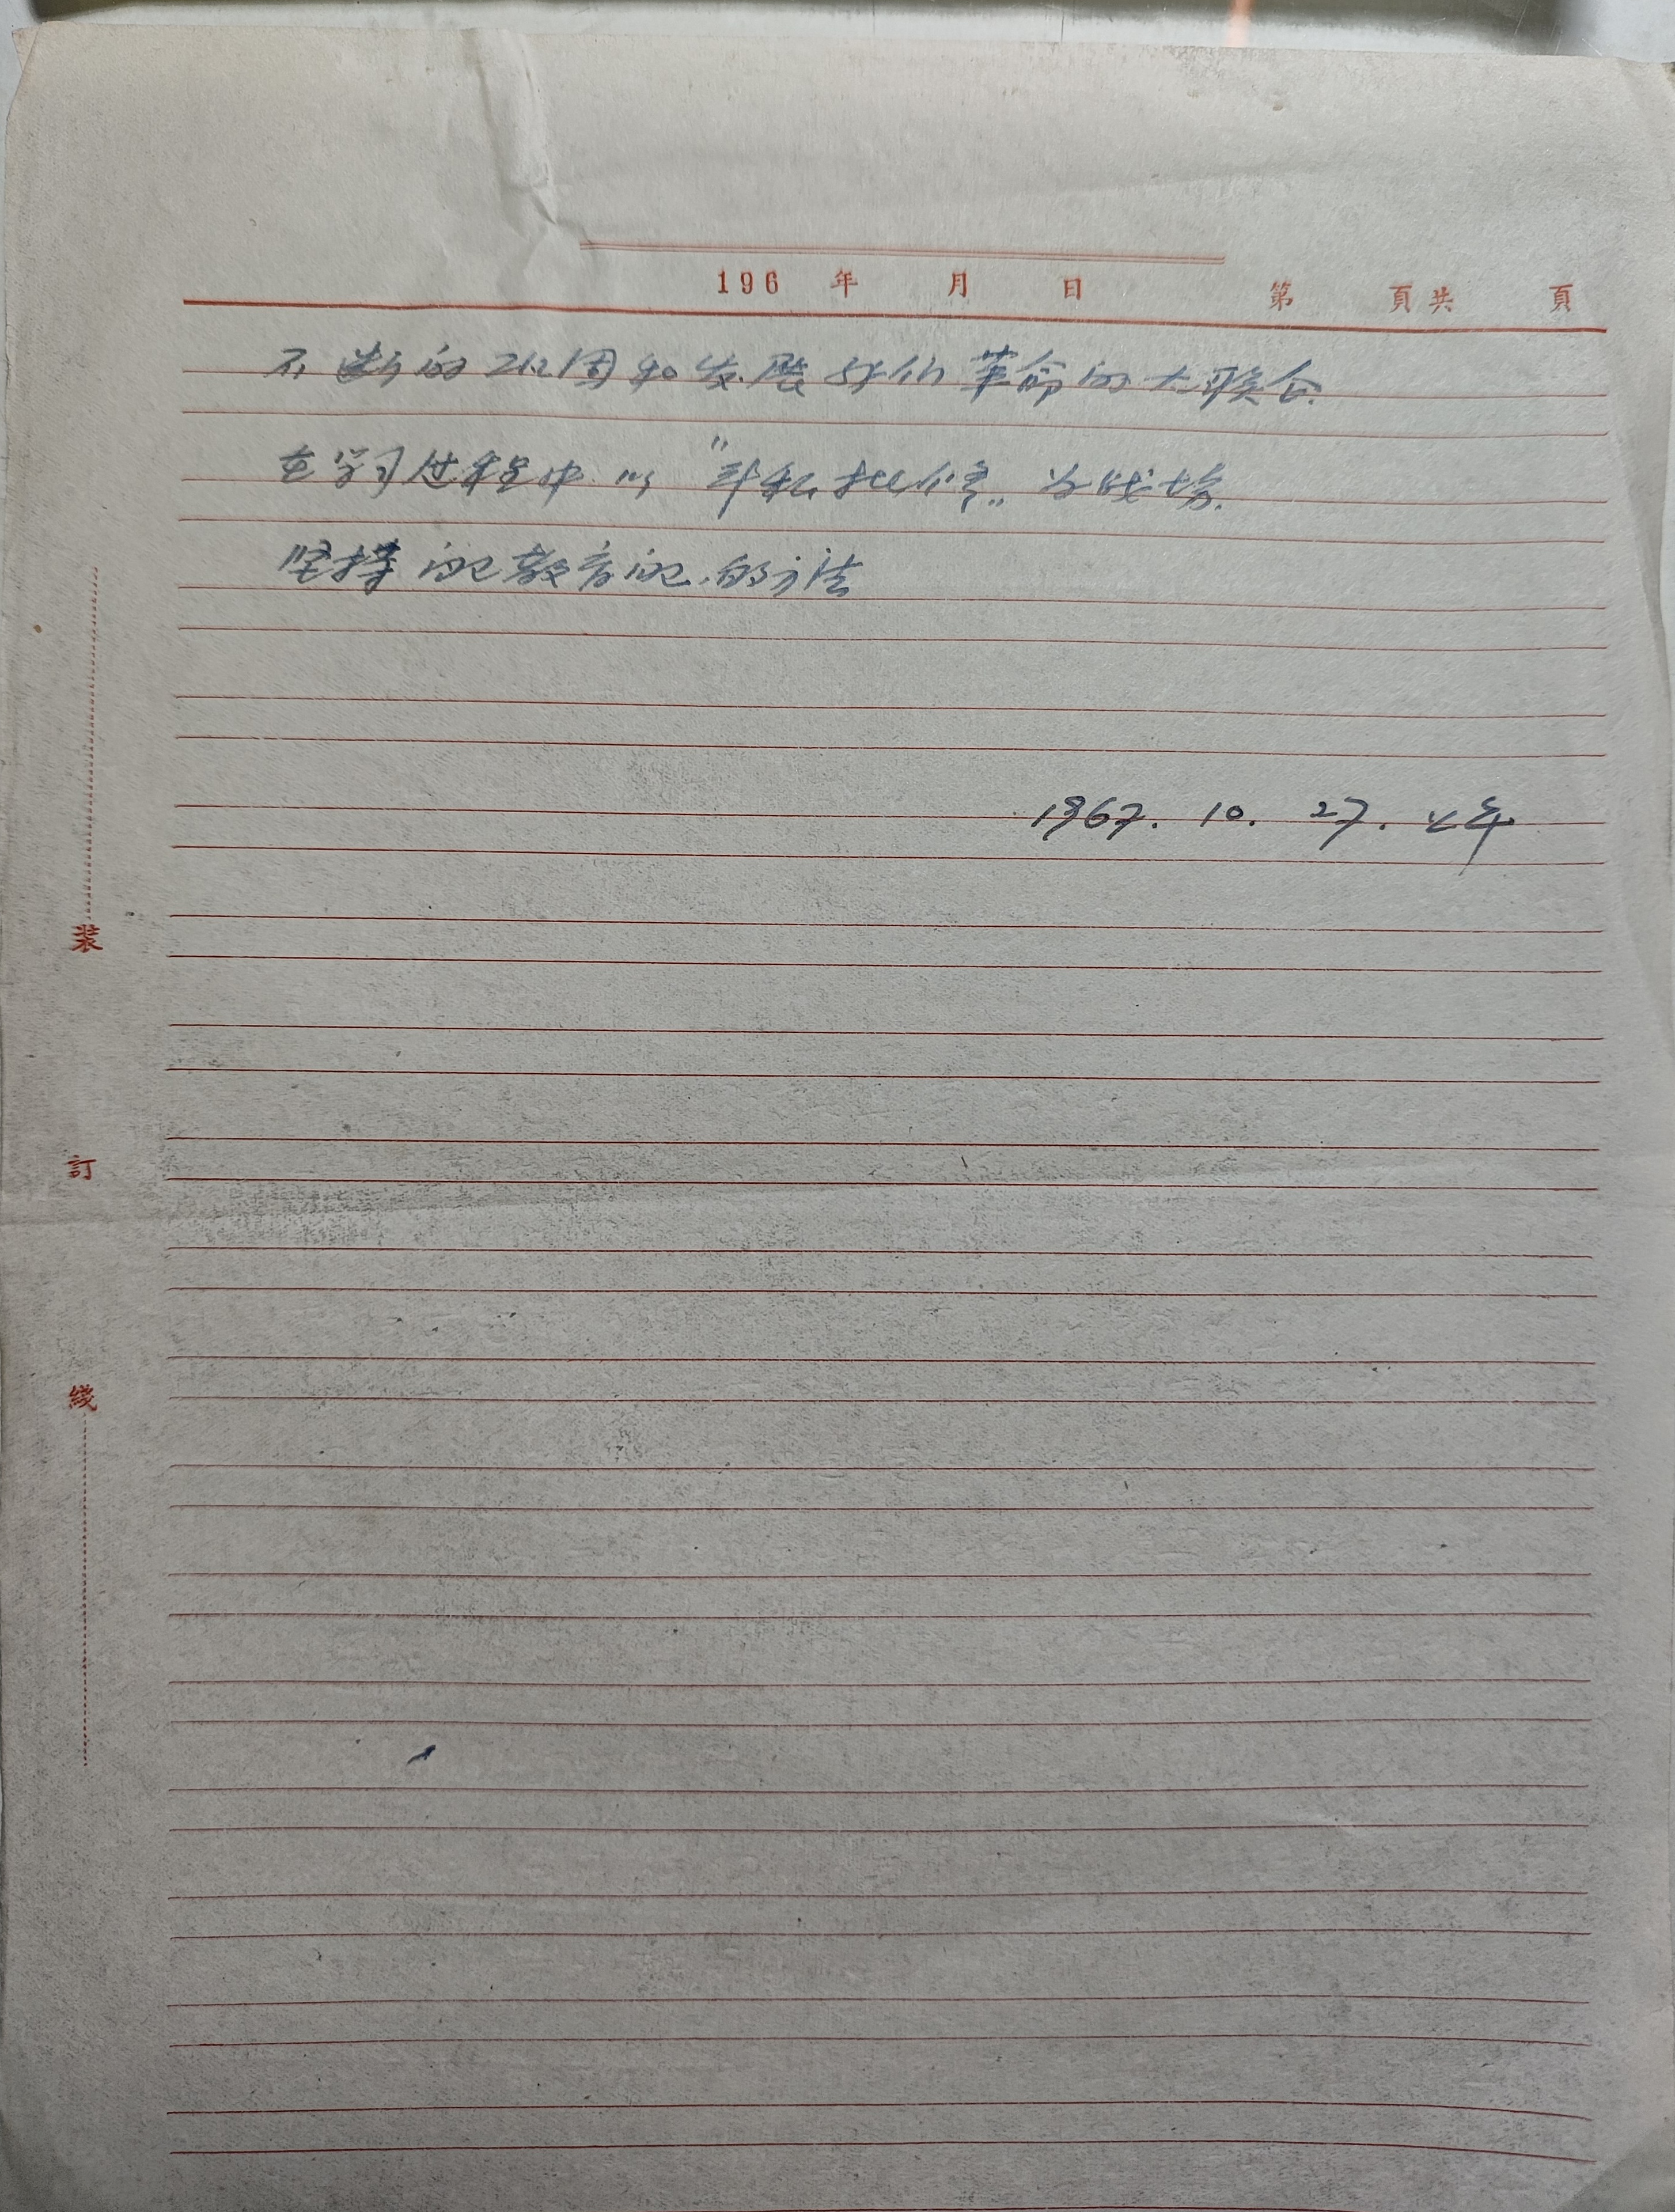 196 年 月 日 第 頁共 頁
不断的巩固和发展我们革命的大联合.
在学习过程中以"斗私批修"为战场.
坚持 教育 的方法
1967. 10. 27.
装
訂
綫